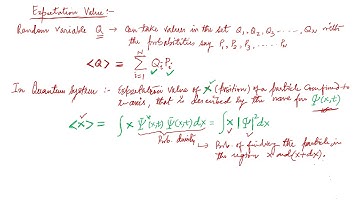 Expectation Value :-
Random variable Q → Can take values in the set Q₁, Q₂, Q₃ ------, Q_N with
the probabilities say P₁, P₂, P₃, ------ P_N
<Q> = \sum_{i=1}^{N} Q_i P_i
In Quantum System :- Expectation value of x (position) of a particle confined to
x-axis, that is described by the wave fnⁿ Ψ(x,t)
<x> = ∫ x Ψ*(x,t) Ψ(x,t) dx = ∫ x |Ψ|² dx
Prob. density
↳ Prob. of finding the particle in
the region x and (x+dx).